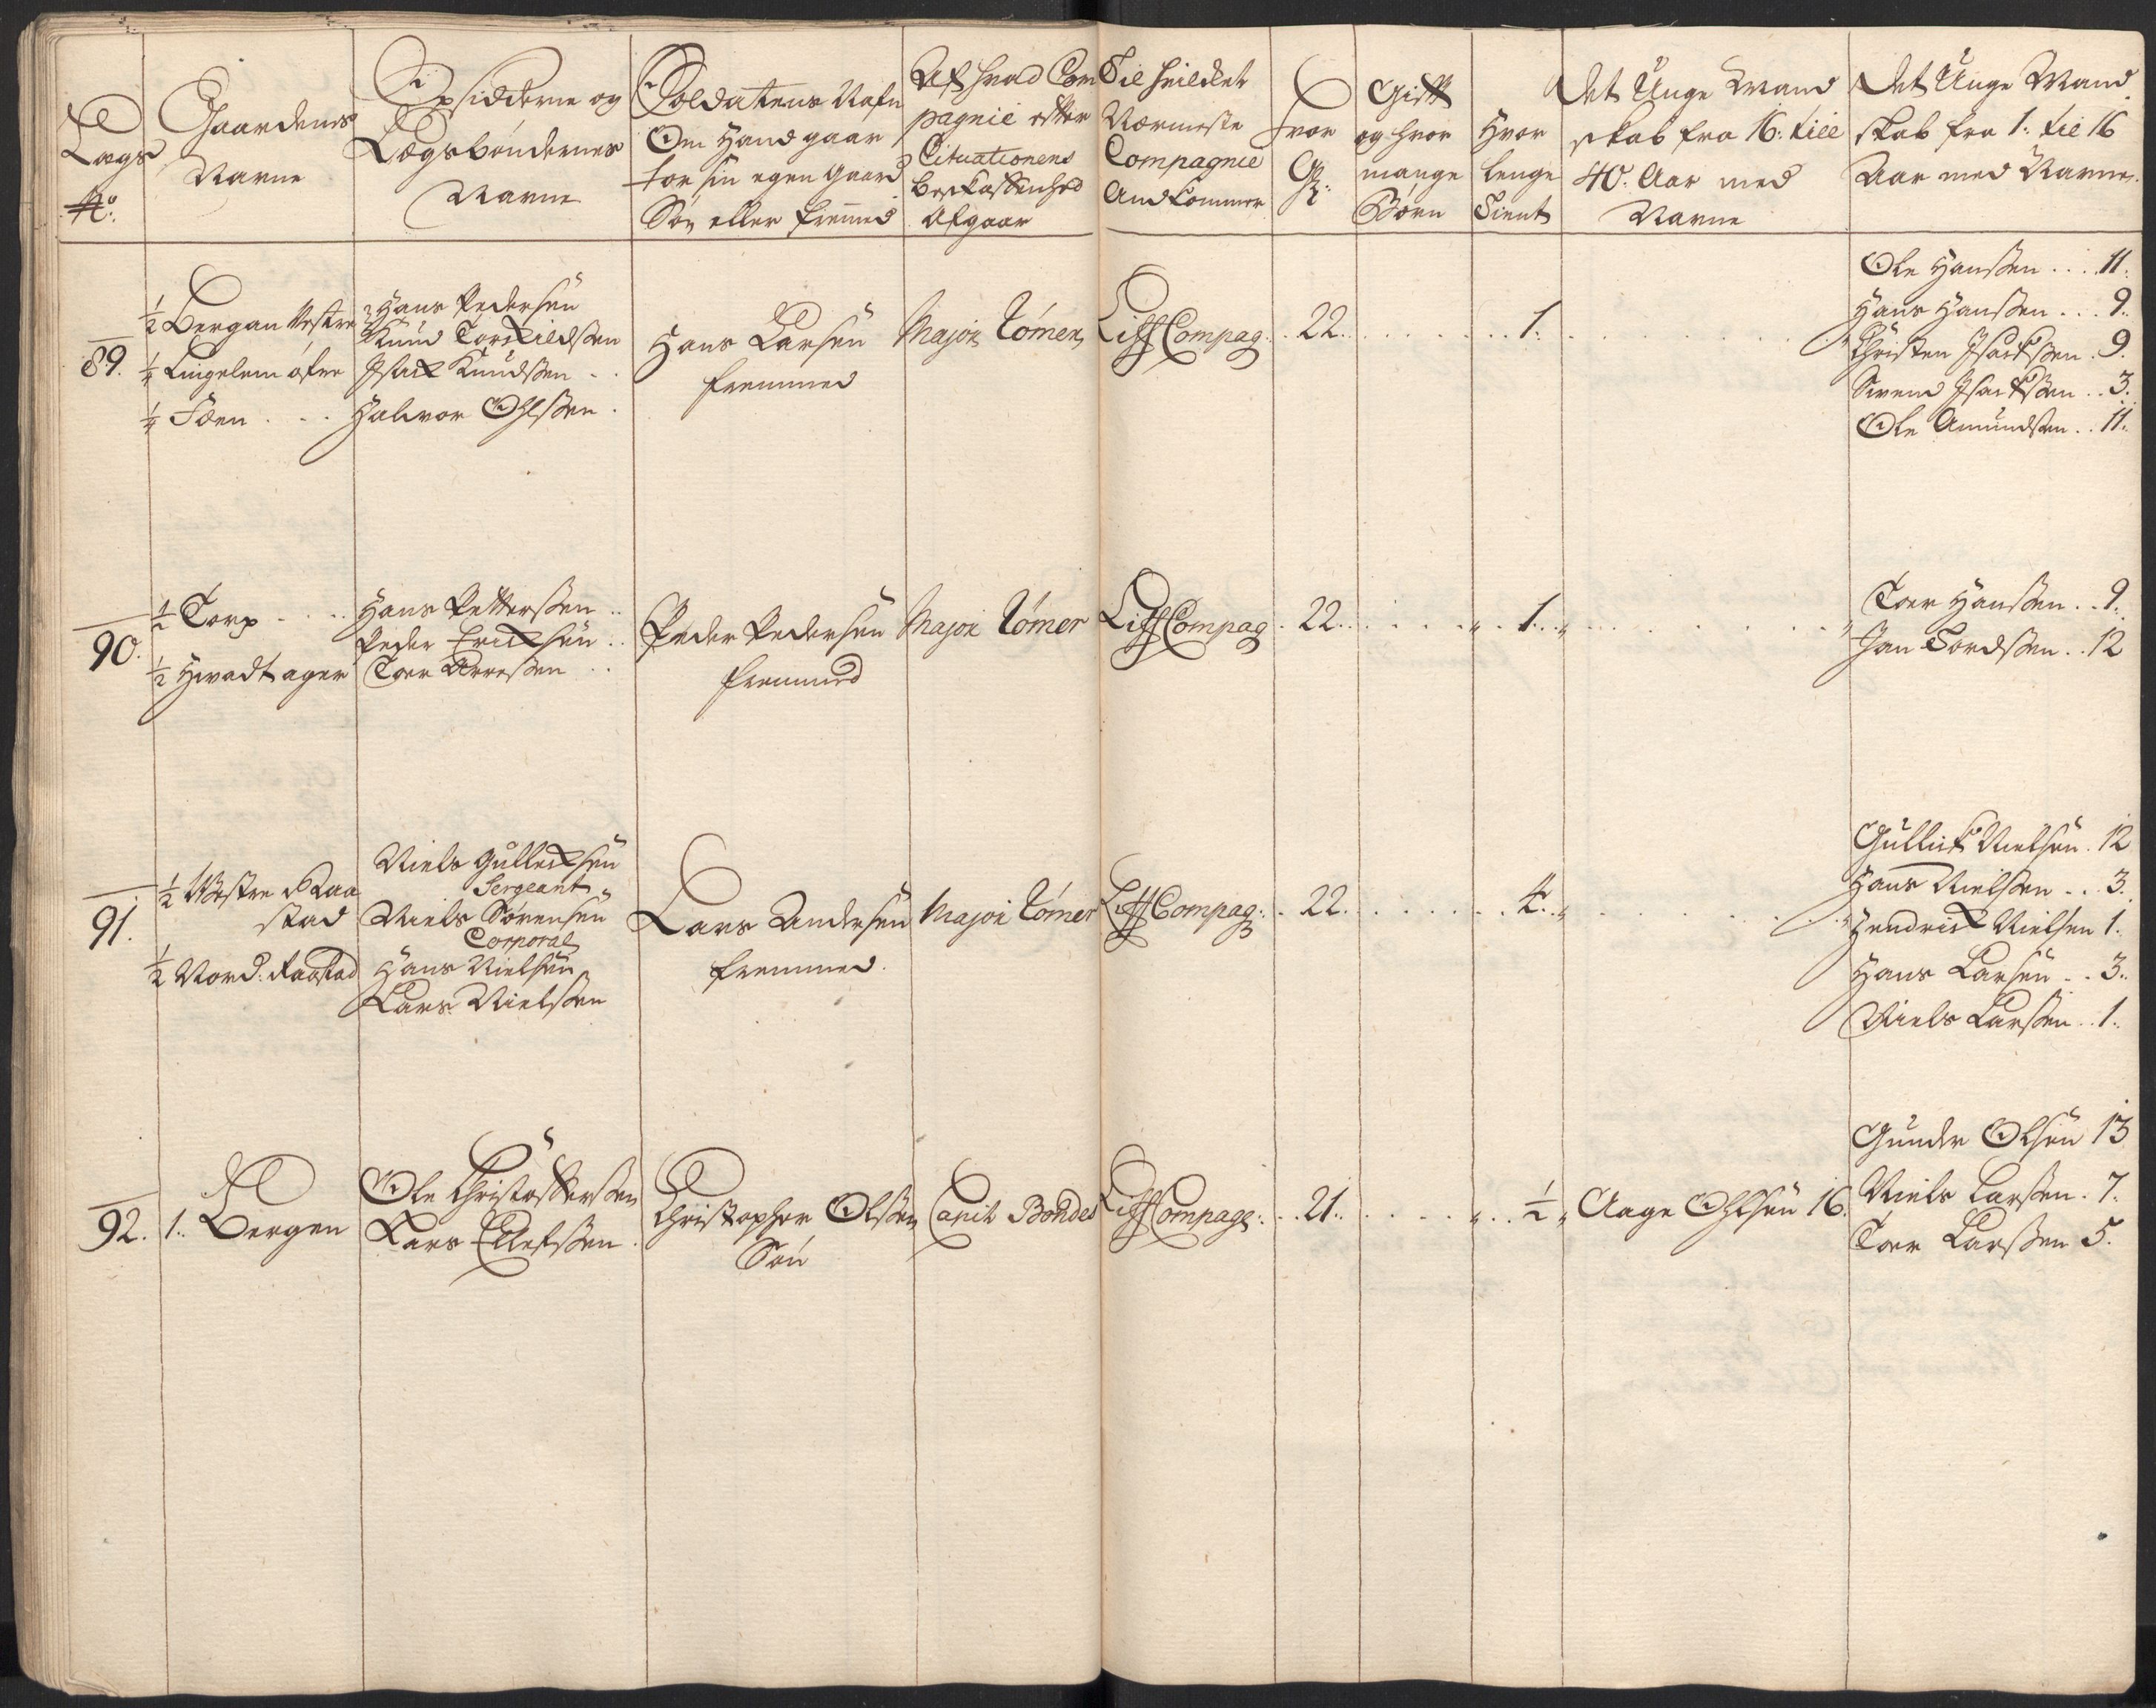 Lægs
No:
Gaardenes
Nafne
Opsidderne og
Lægsbøndernes
Nafne
Soldatens Nafn
Om Hand gaar
for sin egen Gaard
Søn eller fremed
Af hvad Com
pagnie efter
Cituationens
beskaffenhed
Afgaar
Til hvilcket
Nærmeste
Compagnie
And kommer
Hvor
Gl:
Gift
og hvor
mange
Børn
Hvor
lenge
Tient
Det Unge Mand
skab fra 16: till
40: Aar med
Nafne
Det Unge Mand
skab fra 1: til 16
Aar med Nafne
89.
1/2 Bergan Vestre
1/4 Lingelem øfre
1/4 Føen
Hans Pedersen
Knud Torkildssen
Isack Knudssen
Halvor Ohlssen
Hans Larsen
fremmed
Major Rømer
Liff Compag:
22.
1.
Ole Hanssen 11.
Hans Hanssen 9.
Christen Isackssen 9.
Svend Isackssen 3.
Ole Amundssen 11.
90.
1/2 Torp
1/2 Hvadtager
Hans Petterssen
Peder Ericksen
Toer Arnessen
Peder Pedersen
fremmed
Major Rømer
Liff Compag
22.
1.
Toer Hanssen 9.
Jan Tordssen 12
91.
1/2 Vestre Raa
stad
1/2 Nord: Raastad
Niels Gullecksen
Sergeant
Niels Sørensen
Corporal
Hans Nielsen
Lars Nielssen
Lars Andersen
fremmed.
Major Rømer
Liff Compag:
22.
4.
Gullick Nielsen. 12
Hans Nielssen 3.
Hendrick Nielsen 1.
Hans Larsen 3.
Niels Larssen 1.
92.
1. Bergen
Ole Christofferssen
Lars Ellefssen
Christopher Olssen
Søn
Capit Bohdes
Liff Compag:
21.
1/2
Aage Ohlsen 16.
Gunder Olsen 13
Niels Larssen. 7.
Toer Larssen 5.